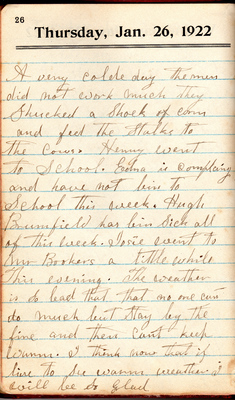 26
Thursday, Jan. 26, 1922
A very colde day the men
did not work much they
Shucked a Shock of corn
and feed the Stalks to
the Cows. Henry went
to School. Edna is complaing
and have not bin to
School this week. Hugh
Brumfield has bin Sick all
of this week. Josie went to
Mr Bookers a little while
this evening. The weather
is so bad that that no one can
do much but Stay by the
fire and then cant keep
warm. I think now that if
live to see warm weather I
will be so glad